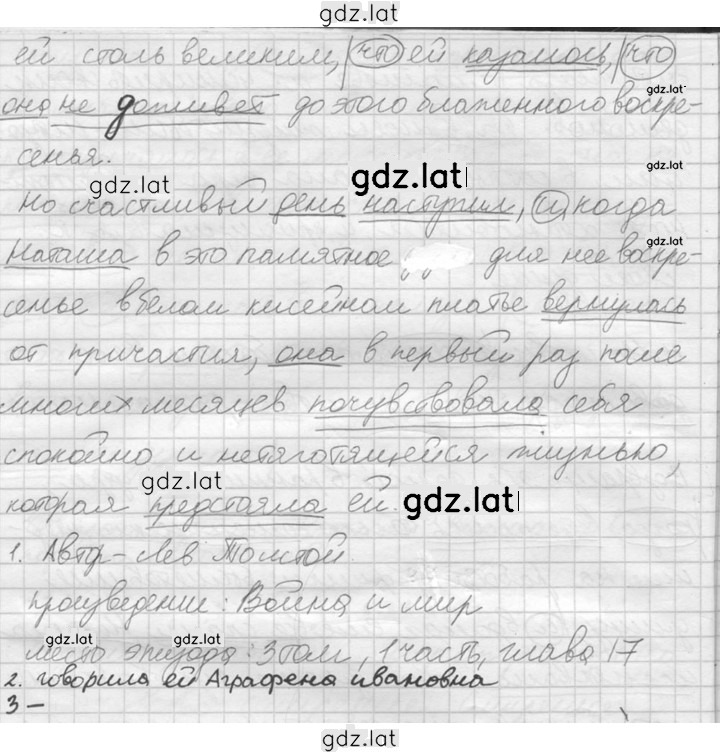 gdz.lat
ей столь великим, что ей казалось, что
gdz.lat
она не доживет до этого блаженного воскре-
сенья.
gdz.lat
gdz.lat
gdz.lat
Но счастливый день наступил, и когда
gdz.lat
Наташа в это памятное для нее воскре-
сенье в белом кисейном платье вернулась
от причастия, она в первый раз после
многих месяцев почувствовала себя
спокойно и нетяготящейся жизнью,
gdz.lat
которая предстояла ей.
gdz.lat
gdz.lat
1. Автр - Лев Толстой
произведение: Война и мир
gdz.lat
gdz.lat
место эпизода: 3 том, 1 часть, глава 17
2. говорила ей Аграфена ивановна
3 -
gdz.lat
gdz.lat